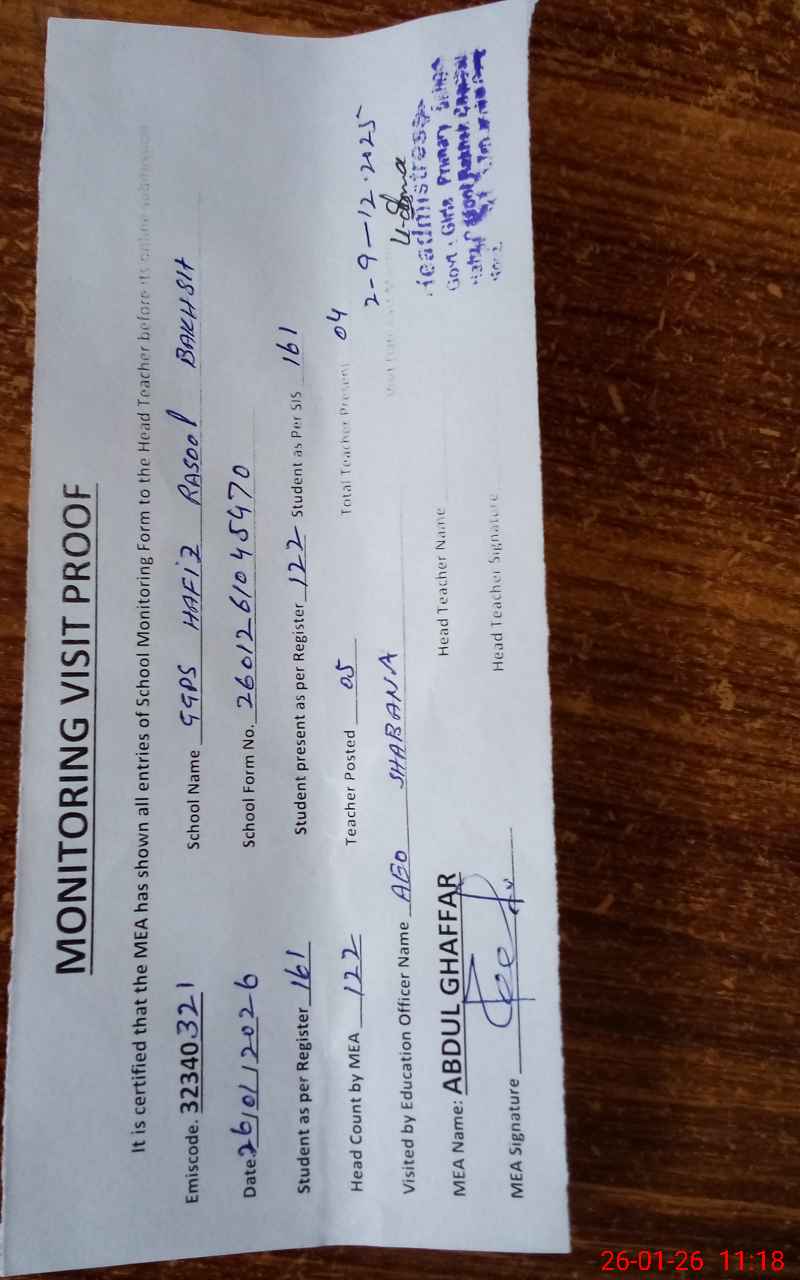 MONITORING VISIT PROOF
It is certified that the MEA has shown all entries of School Monitoring Form to the Head Teacher before its online submission
Emiscode. 32340321 School Name GGPS HAFIZ RASOOL BAKHSH
Date. 26/01/2026 School Form No. 2601261045470
Student as per Register 161 Student present as per Register 122 Student as Per SIS 161
Head Count by MEA 122 Teacher Posted 05 Total Teacher Present 04
Visited by Education Officer Name AEO SHABANA 2-9-12-2025
MEA Name: ABDUL GHAFFAR Head Teacher Name
MEA Signature Head Teacher Signature
Headmistress
Govt. Girls Primary
26-01-26 11:18